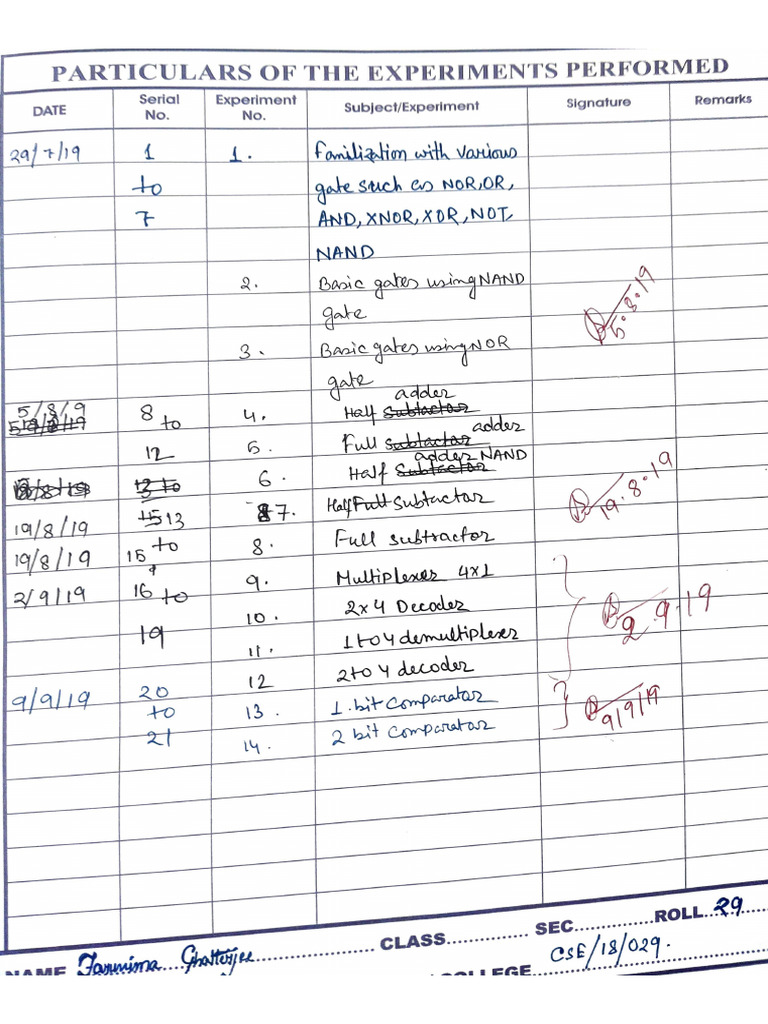 PARTICULARS OF THE EXPERIMENTS PERFORMED
DATE Serial No. Experiment No. Subject/Experiment Signature Remarks
29/7/19 1 1. Familization with various
to gate such as NOR, OR,
7 AND, XNOR, XOR, NOT,
NAND
2. Basic gates using NAND
gate
5.8.19
3. Basic gates using NOR
gate
5/8/9 8 to 4. Half adder
12 5. Full subtactor adder
6. Half Subtactor adder NAND
19/8/19 13 7. Half Full Subtactor
19.8.19
19/8/19 15 to 8. Full subtractor
2/9/19 16 to 9. Multiplexer 4x1
10. 2x4 Decoder
2.9.19
19 11. 1 to 4 demultiplexer
12 2 to 4 decoder
9/9/19 20 13. 1.bit Comparator
to
9/9/19
21 14. 2 bit Comparator
NAME Chatterjee CLASS SEC ROLL 29
COLLEGE CSE/18/029.